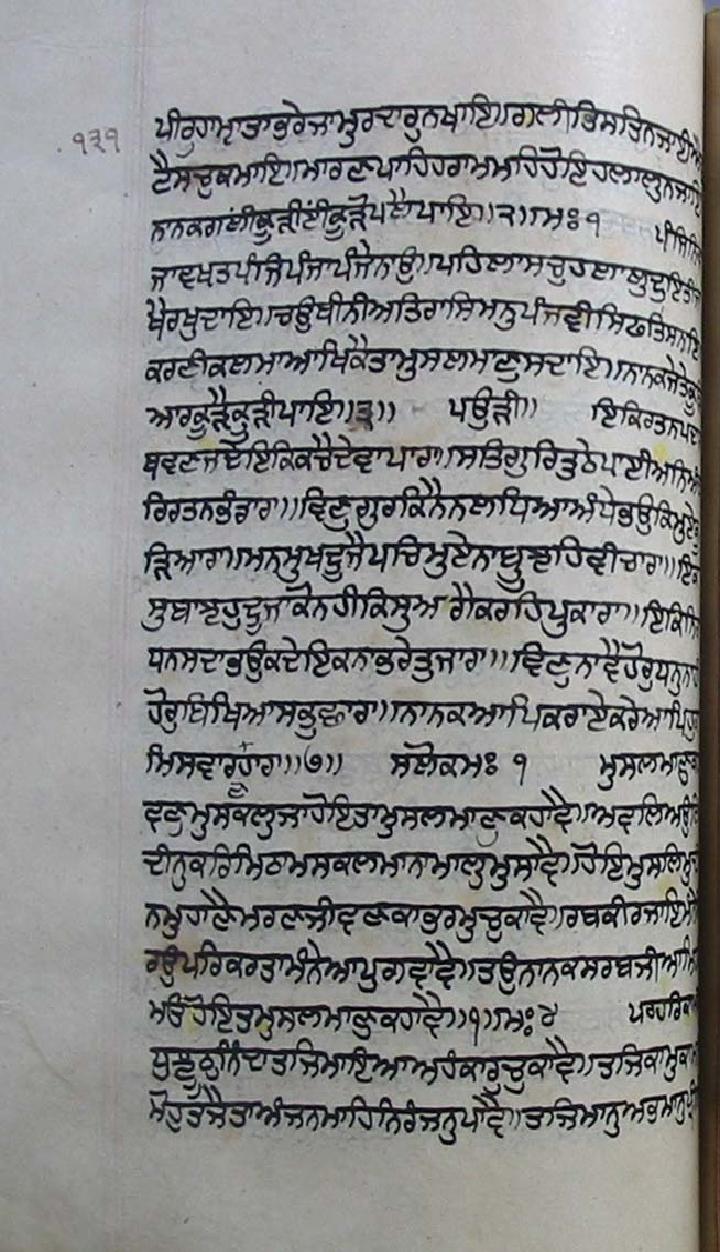 ੧੩੧
ਪੀਰੁਹਾਮਾਤਾਭਰੇਜਾਮੁਰਦਾਰੁਨਖਾਇ॥ਗਲੀਭਿਸਤਿਨਜਾਈਐ
ਟੈਸਚੁਕਮਾਇ॥ਮਾਰਣਪਾਹਿਹਰਾਮਮਹਿਹੋਇਹਲਾਲੁਨਜਾਇ
ਨਾਨਕਗਲੀਕੂੜੀਈਕੂੜੋਪਲੈਪਾਇ॥੨॥ਮਃ ੧ ਪੰਜਿਨਿ
ਜਾਵਖਤਪੰਜਿਪੰਜਾਪੰਜੇਨਾਉ॥ਪਹਿਲਾਸਚੁਹਲਾਲੁਦੁਇਤੀਜਾ
ਖੈਰਖੁਦਾਇ॥ਚਉਥੀਨੀਅਤਿਰਾਸਿਮਨੁਪੰਜਵੀਸਿਫਤਿਸਨਾਇ
ਕਰਣੀਕਲਮਾਆਖਿਕੈਤਾਮੁਸਲਮਾਣੁਸਦਾਇ॥ਨਾਨਕਜੇਤੇਕੂ
ਆਰਕੂੜੈਕੂੜੀਪਾਇ॥੩॥ ਪਉੜੀ॥ ਇਕਿਰਤਨਪਦਾ
ਥਵਣਜਦੇਇਕਿਕਚੈਦੇਵਾਪਾਰਾ॥ਸਤਿਗੁਰਿਤੁਠੇਪਾਈਅਨਿਅੰ
ਰਿਰਤਨਭੰਡਾਰਾ॥ਵਿਣੁਗੁਰਕਿਨੈਨਲਧਿਆਅੰਧੇਭਉਕਿਮੁਏਕੂ
ੜਿਆਰਾ॥ਮਨਮੁਖਦੂਜੈਪਚਿਮੁਏਨਾਬੂਝਹਿਵੀਚਾਰਾ॥ਇਕ
ਸੁਬਾਝਹੁਦੂਜਾਕੋਨਹੀਕਿਸੁਅਗੈਕਰਹਿਪੁਕਾਰਾ॥ਇਕਿਨਿ
ਧਨਸਦਾਭਉਕਦੇਇਕਨਾਭਰੇਤੁਜਾਰਾ॥ਵਿਣੁਨਾਵੈਹੋਰੁਧਨੁਨਾਹੀ
ਹੋਰੁਬਿਖਿਆਸਭੁਛਾਰਾ॥ਨਾਨਕਆਪਿਕਰਾਏਕਰੇਆਪਿਹੁ
ਮਿਸਵਾਰਣਹਾਰਾ॥੭॥ ਸਲੋਕਮਃ ੧ ਮੁਸਲਮਾਣੁਕ
ਵਣੁਮੁਸਕਲੁਜਾਹੋਇਤਾਮੁਸਲਮਾਣੁਕਹਾਵੈ॥ਅਵਲਿਅਉਲਿ
ਦੀਨੁਕਰਿਮਿਠਾਮਸਕਲਮਾਨਾਮਾਲੁਮੁਸਾਵੈ॥ਹੋਇਮੁਸਲਿਮੁਦੀ
ਨਮੁਹਾਣੈਮਰਣਜੀਵਣਕਾਭਰਮੁਚੁਕਾਵੈ॥ਰਬਕੀਰਜਾਇਮੰਨੇ
ਰਉਪਰਿਕਰਤਾਮੰਨੇਆਪੁਗਵਾਵੈ॥ਤਉਨਾਨਕਸਰਬਜੀਆਮਿ
ਮਤਿਹੋਇਤਮੁਸਲਮਾਣੁਕਹਾਵੈ॥੧॥ਮਃ ੪ ਪਰਹਰਿਕਾ
ਝੂਠੁਨਿੰਦਾਤਜਿਮਾਇਆਅਹੰਕਾਰੁਚੁਕਾਵੈ॥ਤਜਿਕਾਮੁਕਾ
ਮੋਹੁਤਜੈਤਾਅੰਜਨਮਾਹਿਨਿਰੰਜਨੁਪਾਵੈ॥ਤਜਿਮਾਨੁਅਭਿਮਾਨੁਪ੍ਰੀ